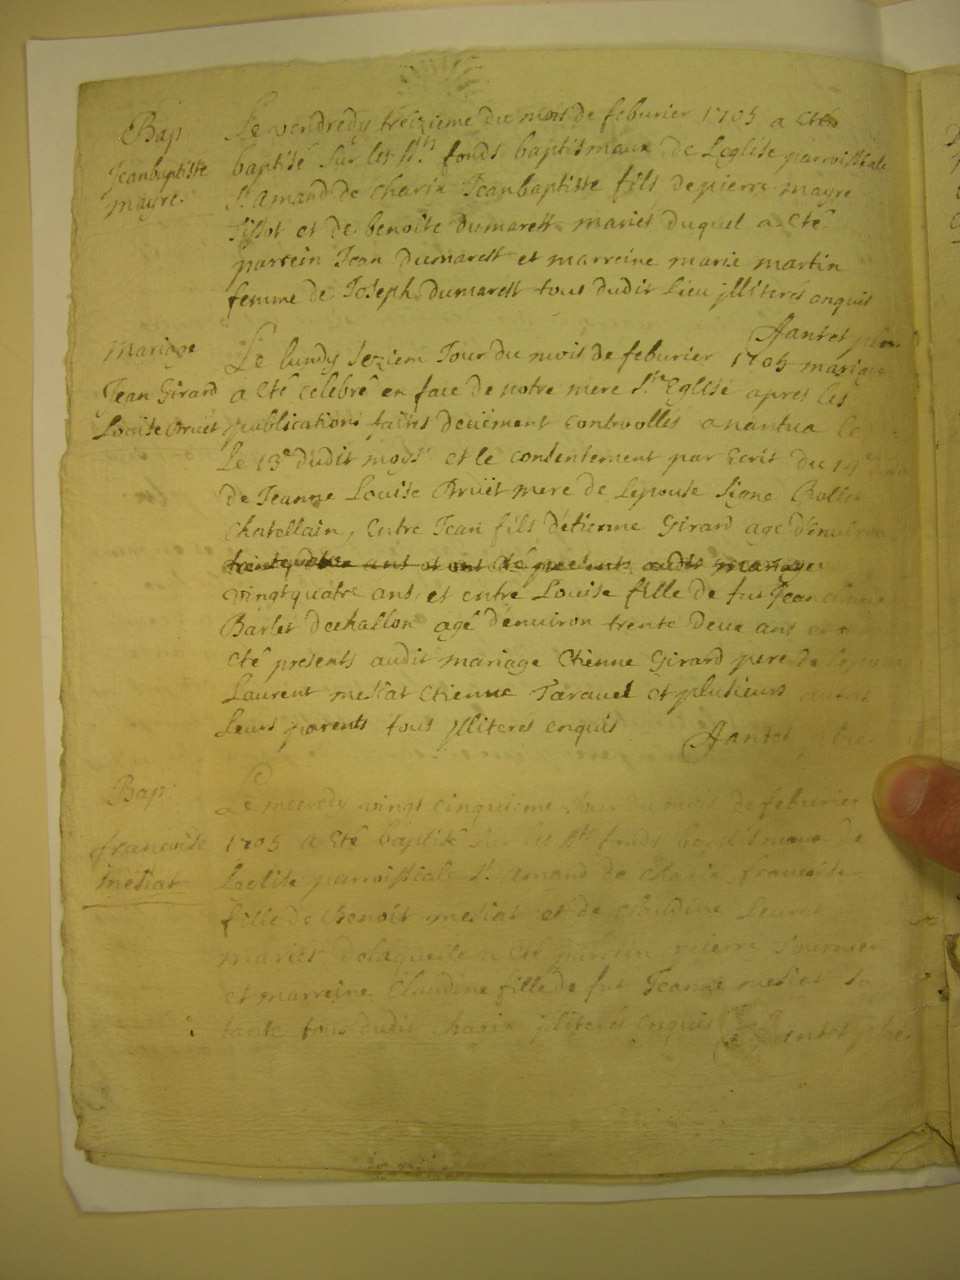 Bap
Jeanbaptiste
mayre
Le vendredy treizieme du mois de feburier 1705 a eté
baptisé sur les sts fonds baptismaux de Leglise parroissiale
st amand de charix Jeanbaptiste fils de pierre mayre
tissot et de benoite dumarest mariés duquel a eté
parrein Jean dumarest et marreine marie martin
femme de Joseph dumarest tous dudit Lieu jlliterés enquis
Jantet
Mariage
Jean Girard
Louise Bruët
Le lundy seziem Jour du mois de feburier 1705 mariage
a eté celebré en face de notre mere ste Eglise apres les
publications faittes deuëment controollés a nantua
Le 13e dudit moys et le consentement par Ecrit du
de Jeanne Louise Bruët mere de Lepouse signe
chatellain, entre Jean fils d'etienne Girard agé d'enuiron
vingtquatre ans et entre Louise fille de fut Jean
Barlet dechallon agé d'enuiron trente deux ans
eté presents audit mariage Etienne Girard pere de
Laurent mesiat Etienne Tarauel et plusieurs autres
Leurs parents tous jlliterés enquis
Jantet
Bap
francoise
mesiat
Le mecredy vingt cinquieme Jour du mois de feburier
1705 a eté baptisé sur les sts fonds baptismaux de
Leglise parroissiale st amand de charix francoise
fille de Benoit mesiat et de claudine
mariés delaquelle a eté parrein pierre
et marreine Claudine fille de fut Jeanne mesiat sa
tante tous dudit charix jlliterés enquis Jantet